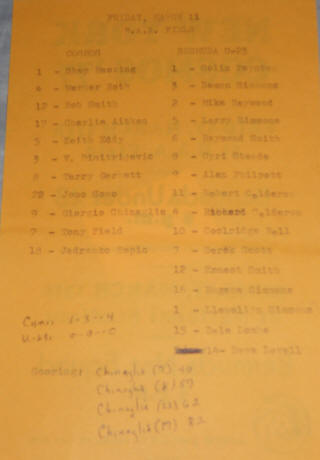 FRIDAY, MARCH 11
B.A.A. FIELD
COSMOS BERMUDA U-23
1 - Shep Messing 1 - Colin Paynter
4 - Werner Roth 3 - Simmons
12 - Bob Smith 2 - Mike Raynood
17 - Charlie Aitken 5 - Larry Simmons
5 - Keith Eddy 6 - Raymond Smith
3 - V. Dimitrijevic 8 - Cyri Steede
8 - Terry Garbett 9 - Alan Philpott
22 - Jomo Sono 11 - Robert Calderon
9 - Giorgio Chinaglia 4 - Richard Calderon
7 - Tony Field 10 - Coolridge Bell
18 - Jadranko Topic 7 - Derek Scott
12 - Ernest Smith
16 - Eugene Simmons
1 - Llewellyn Simmons
15 - Dale
14 - Dave Lovell
Cosmos: 1--3--4
U-23: 0--0--0
Scoring: Chinaglia 40
Chinaglia 57
Chinaglia 62
Chinaglia 82